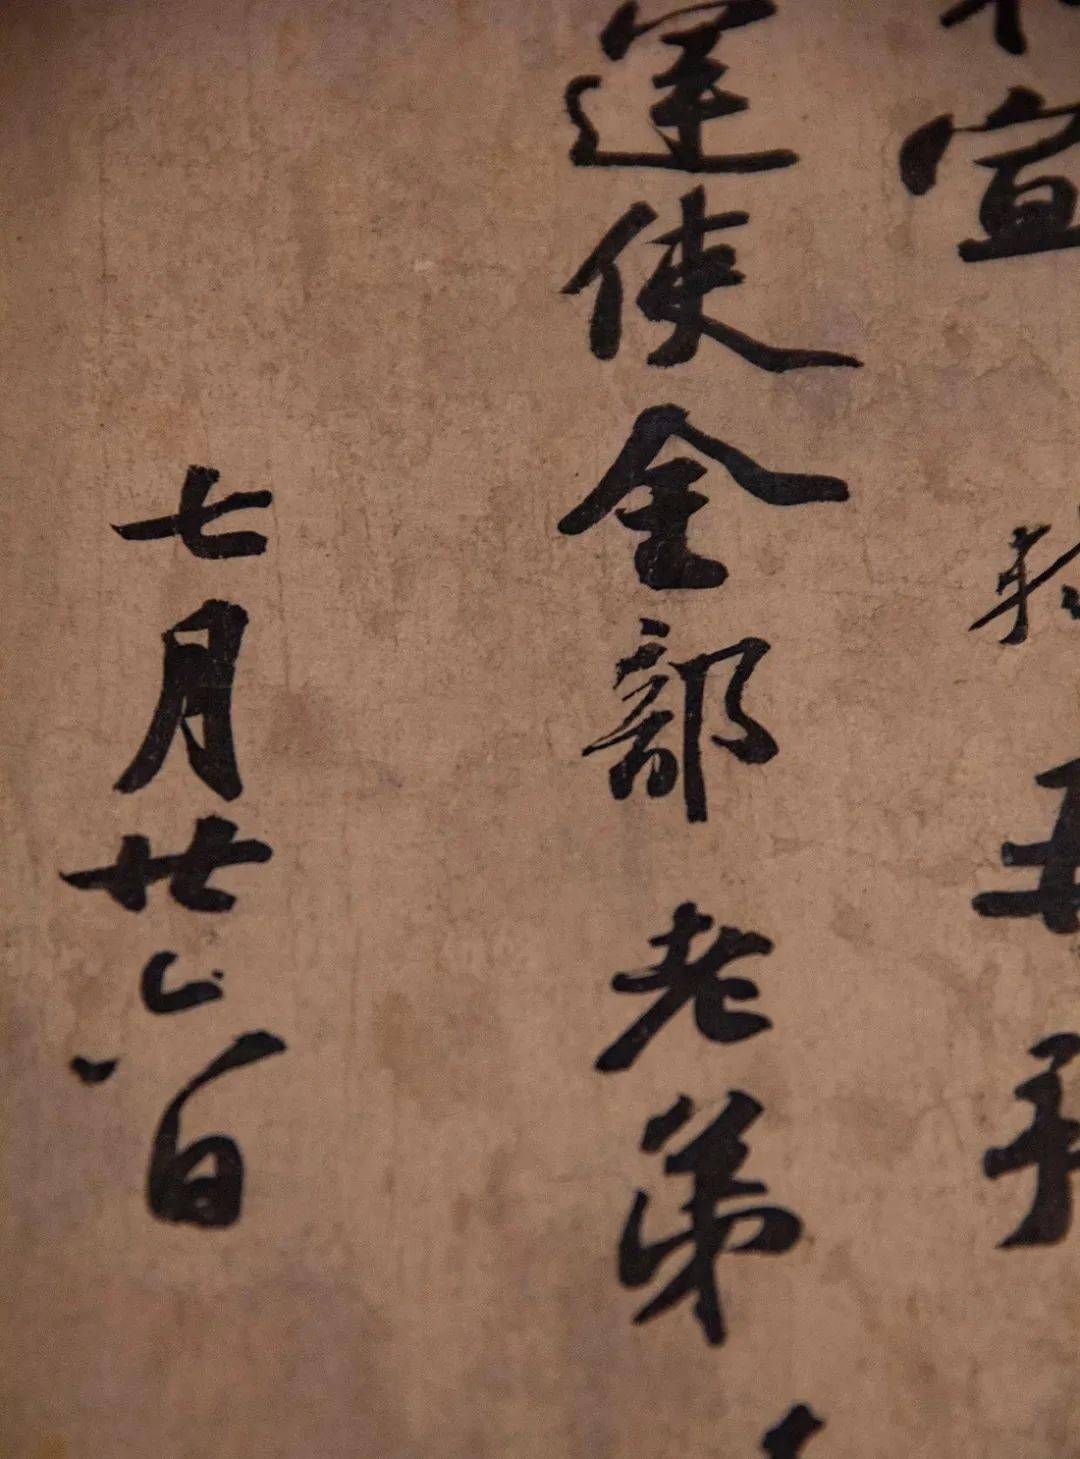 宣
運使金部老弟
七月廿六日